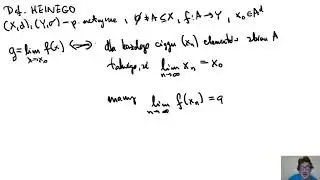 Def. HEINEGO
(X,d), (Y,σ) - p. metryczne, ∅ ≠ A ⊆ X, f: A → Y, x₀ ∈ Aᵈ
g = lim_{x→x₀} f(x) ⟺ dla każdego ciągu (xₙ) elementów zbioru A
takiego, że lim_{n→∞} xₙ = x₀
mamy lim_{n→∞} f(xₙ) = g